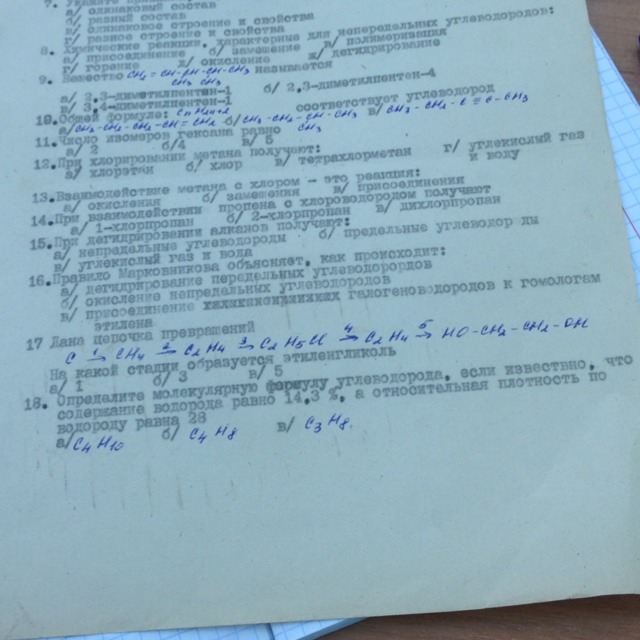 7. Укажите
а/ одинаковый состав
б/ разный состав
в/ одинаковое строение и свойства
г/ разное строение и свойства
8. Химические реакции, характерные для непредельных углеводородов:
а/ присоединение б/ замещение в/ полимеризация
г/ горение д/ окисление ж/ дегидрирование
9. Вещество CH₂=CH-CH-CH-CH₃ называется
CH₃ CH₃
а/ 2,3-диметилпентен-1 б/ 2,3-диметилпентен-4
в/ 3,4-диметилпентен-1
10. Общей формуле: соответствует углеводород
а/ CH₃-CH₂-CH₂-CH=CH₂ б/ CH₃-CH₂-CH-CH₃ в/ CH₃-CH₂-C≡C-CH₃
CH₃
11. Число изомеров гексана равно
а/ 2 б/4 в/ 5
12. При хлорировании метана получают:
а/ хлорэтан б/ хлор в/ тетрахлорметан г/ углекислый газ
и воду
13. Взаимодействие метана с хлором - это реакция:
а/ окисления б/ замещения в/ присоединения
14. При взаимодействии пропена с хлороводородом получают
а/ 1-хлорпропан б/ 2-хлорпропан в/ дихлорпропан
15. При дегидрировании алканов получают:
а/ непредельные углеводороды б/ предельные углеводор ды
в/ углекислый газ и вода
16. Правило Марковникова объясняет, как происходит:
а/ дегидрирование непредельных углеводородов
б/ окисление непредельных углеводородов
в/ присоединение галогеноводородов к гомологам
этилена
17 Дана цепочка превращений
C 1→ CH₄ 2→ C₂H₄ 3→ C₂H₅Cl 4→ C₂H₄ 5→ HO-CH₂-CH₂-OH
На какой стадии образуется этиленгликоль
а/ 1 б/ 3 в/ 5
18. Определите молекулярную формулу углеводорода, если известно, что
содержание водорода равно 14,3 %, а относительная плотность по
водороду равна 28
а/ C₄H₁₀ б/ C₄H₈ в/ C₃H₈.